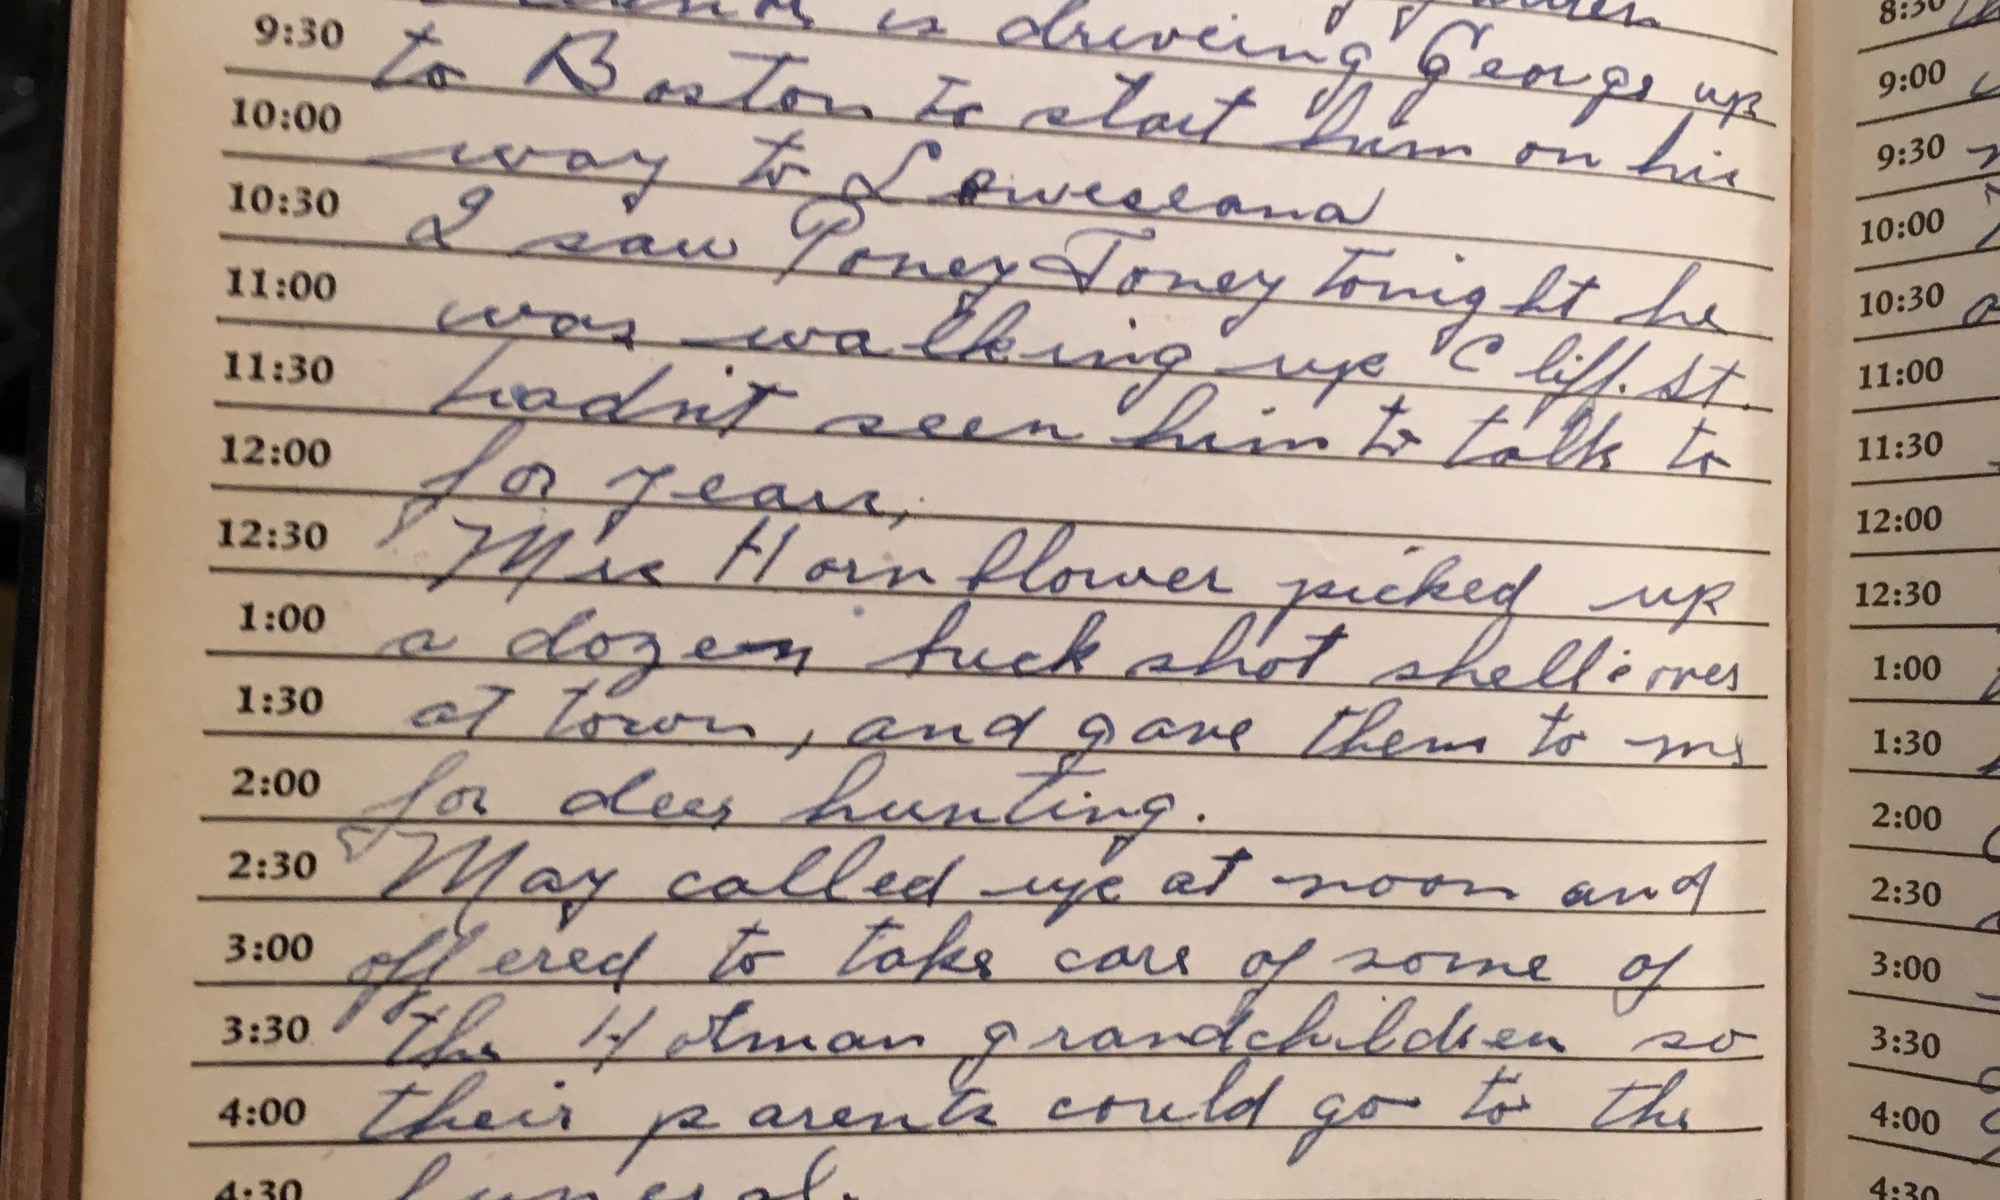 9:30 is driveing George up
10:00 to Boston to start him on his
10:30 way to Loweseana
11:00 I saw Poney Toney tonight he
11:30 was walking up Cliff. St.
12:00 hadn't seen him to talk to
12:30 for years,
1:00 Mrs Hornblower picked up
1:30 a dozen buck shot shells over
2:00 at town, and gave them to me
2:30 for deer hunting.
3:00 May called up at noon and
3:30 offered to take care of some of
4:00 the Hotman grandchildren so
4:30 their parents could go to the
funeral.
8:30
9:00
9:30
10:00
10:30
11:00
11:30
12:00
12:30
1:00
1:30
2:00
2:30
3:00
3:30
4:00
4:30